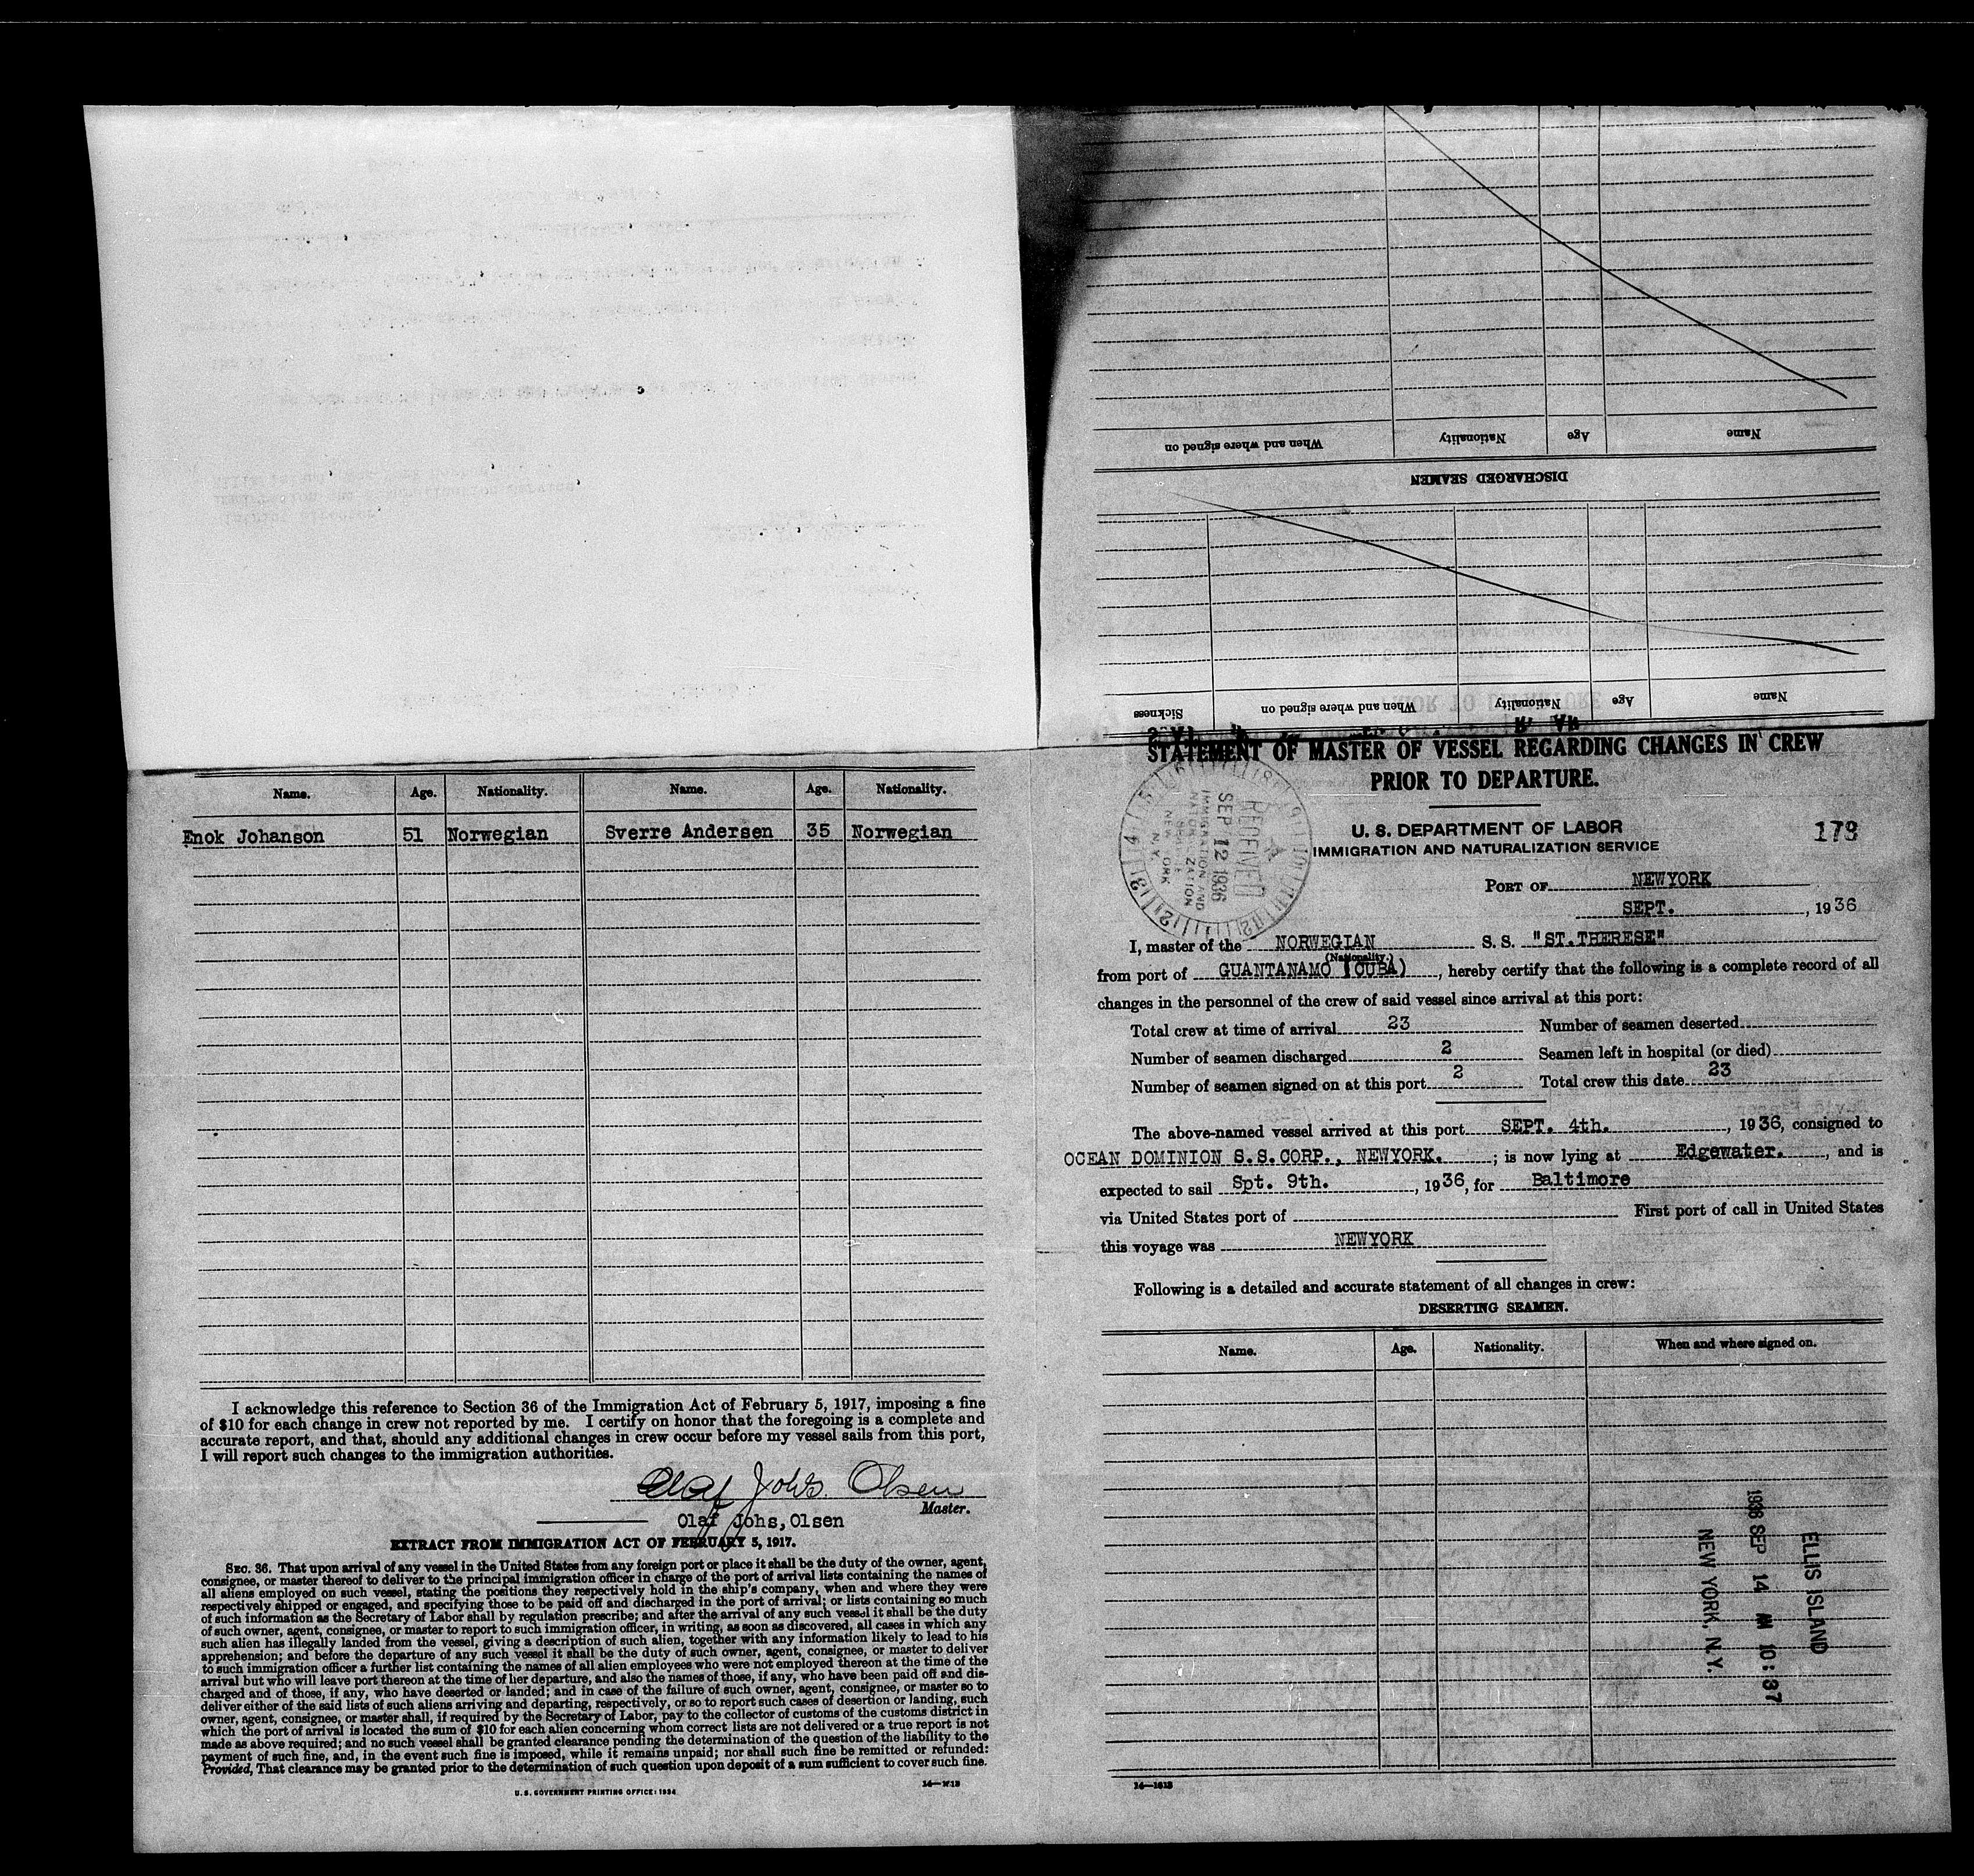 Name. Age. Nationality. Name. Age. Nationality.
Enok Johanson 51 Norwegian Sverre Andersen 35 Norwegian
I acknowledge this reference to Section 36 of the Immigration Act of February 5, 1917, imposing a fine
of $10 for each change in crew not reported by me. I certify on honor that the foregoing is a complete and
accurate report, and that, should any additional changes in crew occur before my vessel sails from this port,
I will report such changes to the immigration authorities.
Olaf Johs. Olsen
Master.
Olaf Johs, Olsen
EXTRACT FROM IMMIGRATION ACT OF FEBRUARY 5, 1917.
SEC. 36. That upon arrival of any vessel in the United States from any foreign port or place it shall be the duty of the owner, agent,
consignee, or master thereof to deliver to the principal immigration officer in charge of the port of arrival lists containing the names of
all aliens employed on such vessel, stating the positions they respectively hold in the ship's company, when and where they were
respectively shipped or engaged, and specifying those to be paid off and discharged in the port of arrival; or lists containing so much
of such information as the Secretary of Labor shall by regulation prescribe; and after the arrival of any such vessel it shall be the duty
of such owner, agent, consignee, or master to report to such immigration officer, in writing, as soon as discovered, all cases in which any
such alien has illegally landed from the vessel, giving a description of such alien, together with any information likely to lead to his
apprehension; and before the departure of any such vessel it shall be the duty of such owner, agent, consignee, or master to deliver
to such immigration officer a further list containing the names of all alien employees who were not employed thereon at the time of the
arrival but who will leave port thereon at the time of her departure, and also the names of those, if any, who have been paid off and dis-
charged and of those, if any, who have deserted or landed; and in case of the failure of such owner, agent, consignee, or master so to
deliver either of the said lists of such aliens arriving and departing, respectively, or so to report such cases of desertion or landing, such
owner, agent, consignee, or master shall, if required by the Secretary of Labor, pay to the collector of customs of the customs district in
which the port of arrival is located the sum of $10 for each alien concerning whom correct lists are not delivered or a true report is not
made as above required; and no such vessel shall be granted clearance pending the determination of the question of the liability to the
payment of such fine, and, in the event such fine is imposed, while it remains unpaid; nor shall such fine be remitted or refunded:
Provided, That clearance may be granted prior to the determination of such question upon deposit of a sum sufficient to cover such fine.
U. S. GOVERNMENT PRINTING OFFICE: 1934
Name Age Nationality When and where signed on
DISCHARGED SEAMEN
Name Age Nationality When and where signed on Sickness
STATEMENT OF MASTER OF VESSEL REGARDING CHANGES IN CREW
PRIOR TO DEPARTURE.
U. S. DEPARTMENT OF LABOR
IMMIGRATION AND NATURALIZATION SERVICE
178
RECEIVED
SEP 12 1936
IMMIGRATION AND
NATURALIZATION
SERVICE
NEW YORK
N. Y.
PORT OF NEWYORK
SEPT. , 1936
I, master of the NORWEGIAN S. S. "ST.THERESE"
(Nationality.)
from port of GUANTANAMO (CUBA) , hereby certify that the following is a complete record of all
changes in the personnel of the crew of said vessel since arrival at this port:
Total crew at time of arrival 23 Number of seamen deserted
Number of seamen discharged 2 Seamen left in hospital (or died)
Number of seamen signed on at this port 2 Total crew this date 23
The above-named vessel arrived at this port SEPT. 4th. , 1936, consigned to
OCEAN DOMINION S.S.CORP., NEWYORK. ; is now lying at Edgewater. , and is
expected to sail Spt. 9th. , 1936, for Baltimore
via United States port of First port of call in United States
this voyage was NEWYORK
Following is a detailed and accurate statement of all changes in crew:
DESERTING SEAMEN.
Name. Age. Nationality. When and where signed on.
ELLIS ISLAND
1936 SEP 14 AM 10:37
NEW YORK, N.Y.
14—1613